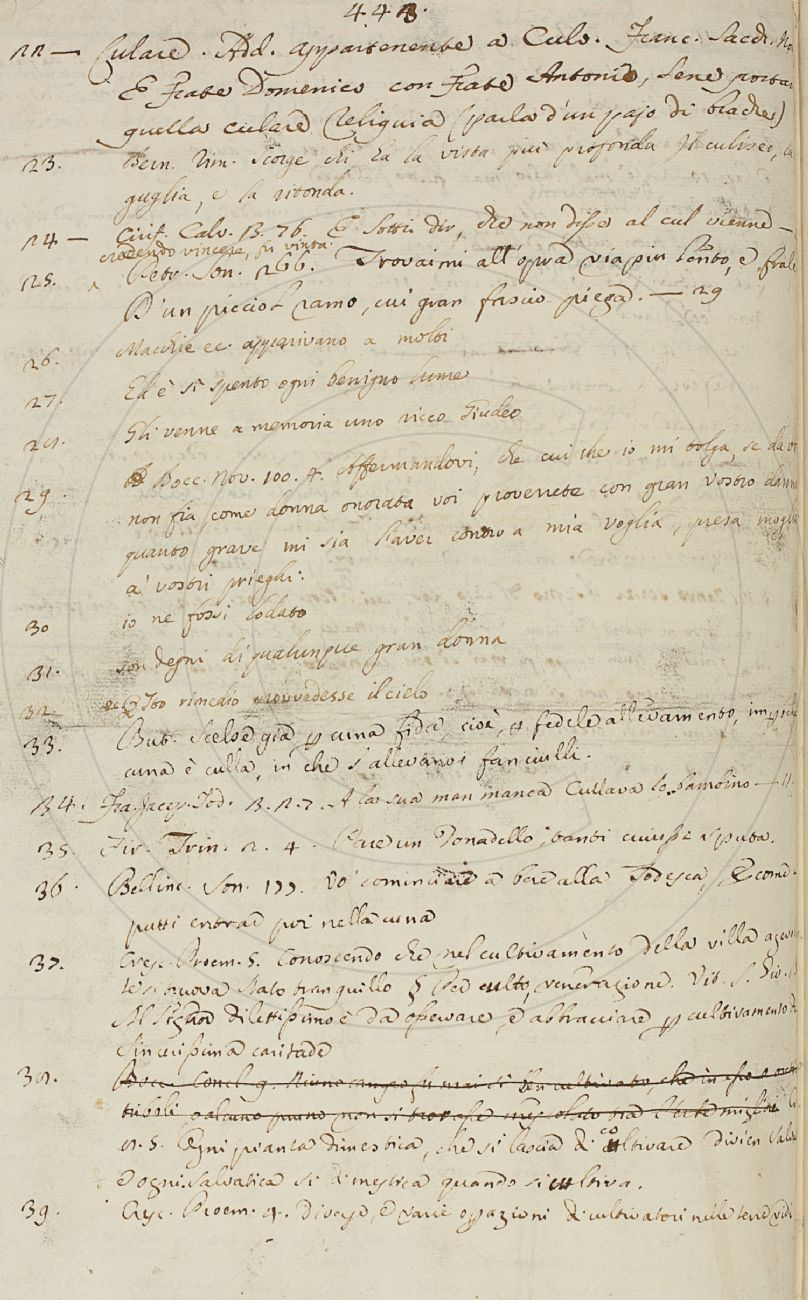 443.
22 — Culare. Add. appartenente a Culo. Franc. Sacch.
E Frate Domenico con Frate Antonio, sene portar
quella culare Reliquia (parla d'un pajo di brache)
23. Bern. Rim. Scorge chi ha la vista più profonda Il culiseo, la
guglia, e la ritonda.
24 — Ciriff. Calv. 13. 76. E Sottil dir, che non disse al cul vienne —
credendo vincere, fu vinta.
25. ^ Petr. Son. 266. Trovaimi all'opra via più lento, e frale
D'un picciol ramo, cui gran fascio piega. — 29
26. Macchie ec. apparivano a molti
27. Ed è sì spento ogni benigno lume
28. Gli venne a memoria uno ricco Giudeo
29. Bocc. Nov. 100. 4. Affermandovi, che cui che io mi tolga, se da voi
non fia come donna onorata, voi proverrete con gran vostro danno
quanto grave mi sia l'aver contro a mia voglia, presa moglie
a' vostri prieghi.
30 io ne fossi lodato
31. son degni di qualunque gran donna
32. rimedio provvedesse il cielo
33. But. Scelse già p cuna fida, cioè, p fedele allevamento,
cuna è culla, in che s'allevano i fanciulli.
34. Fra Jacop. Tod. A la sua man manca Cullava lo bambino.
35. Fir. Trin. 2. 4. Pare un Donadello, tanti cujusse sputa.
36. Bellinc. Son. Vo' cominciare a bere alla Todesca, E come
putti entrare poi nella cuna
37. Cresc. Proem. 5. Conoscendo che nel cultivamento della villa agevolmen
te si truova stato tranquillo § Per culto, venerazione. Vit. S. Gio.
Al Signor dilettissimo è da osservare, e abbracciare p cultivamento di
sincerissima caritade
38. Bocc. Concl. 9. Niuno campo fu mai sì ben cultivato, che in esso o ortica
triboli o alcuno pruno non si trovasse mescolato tra l'erbe migliori
5. Ogni pianta dimestica, che si lascia di coltivare divien salvatica
e ogni salvatica si dimestica quando si cultiva.
39. Cresc. Proem. 4. Diverse, e varie operazioni di cultivatori nelle terre vidi